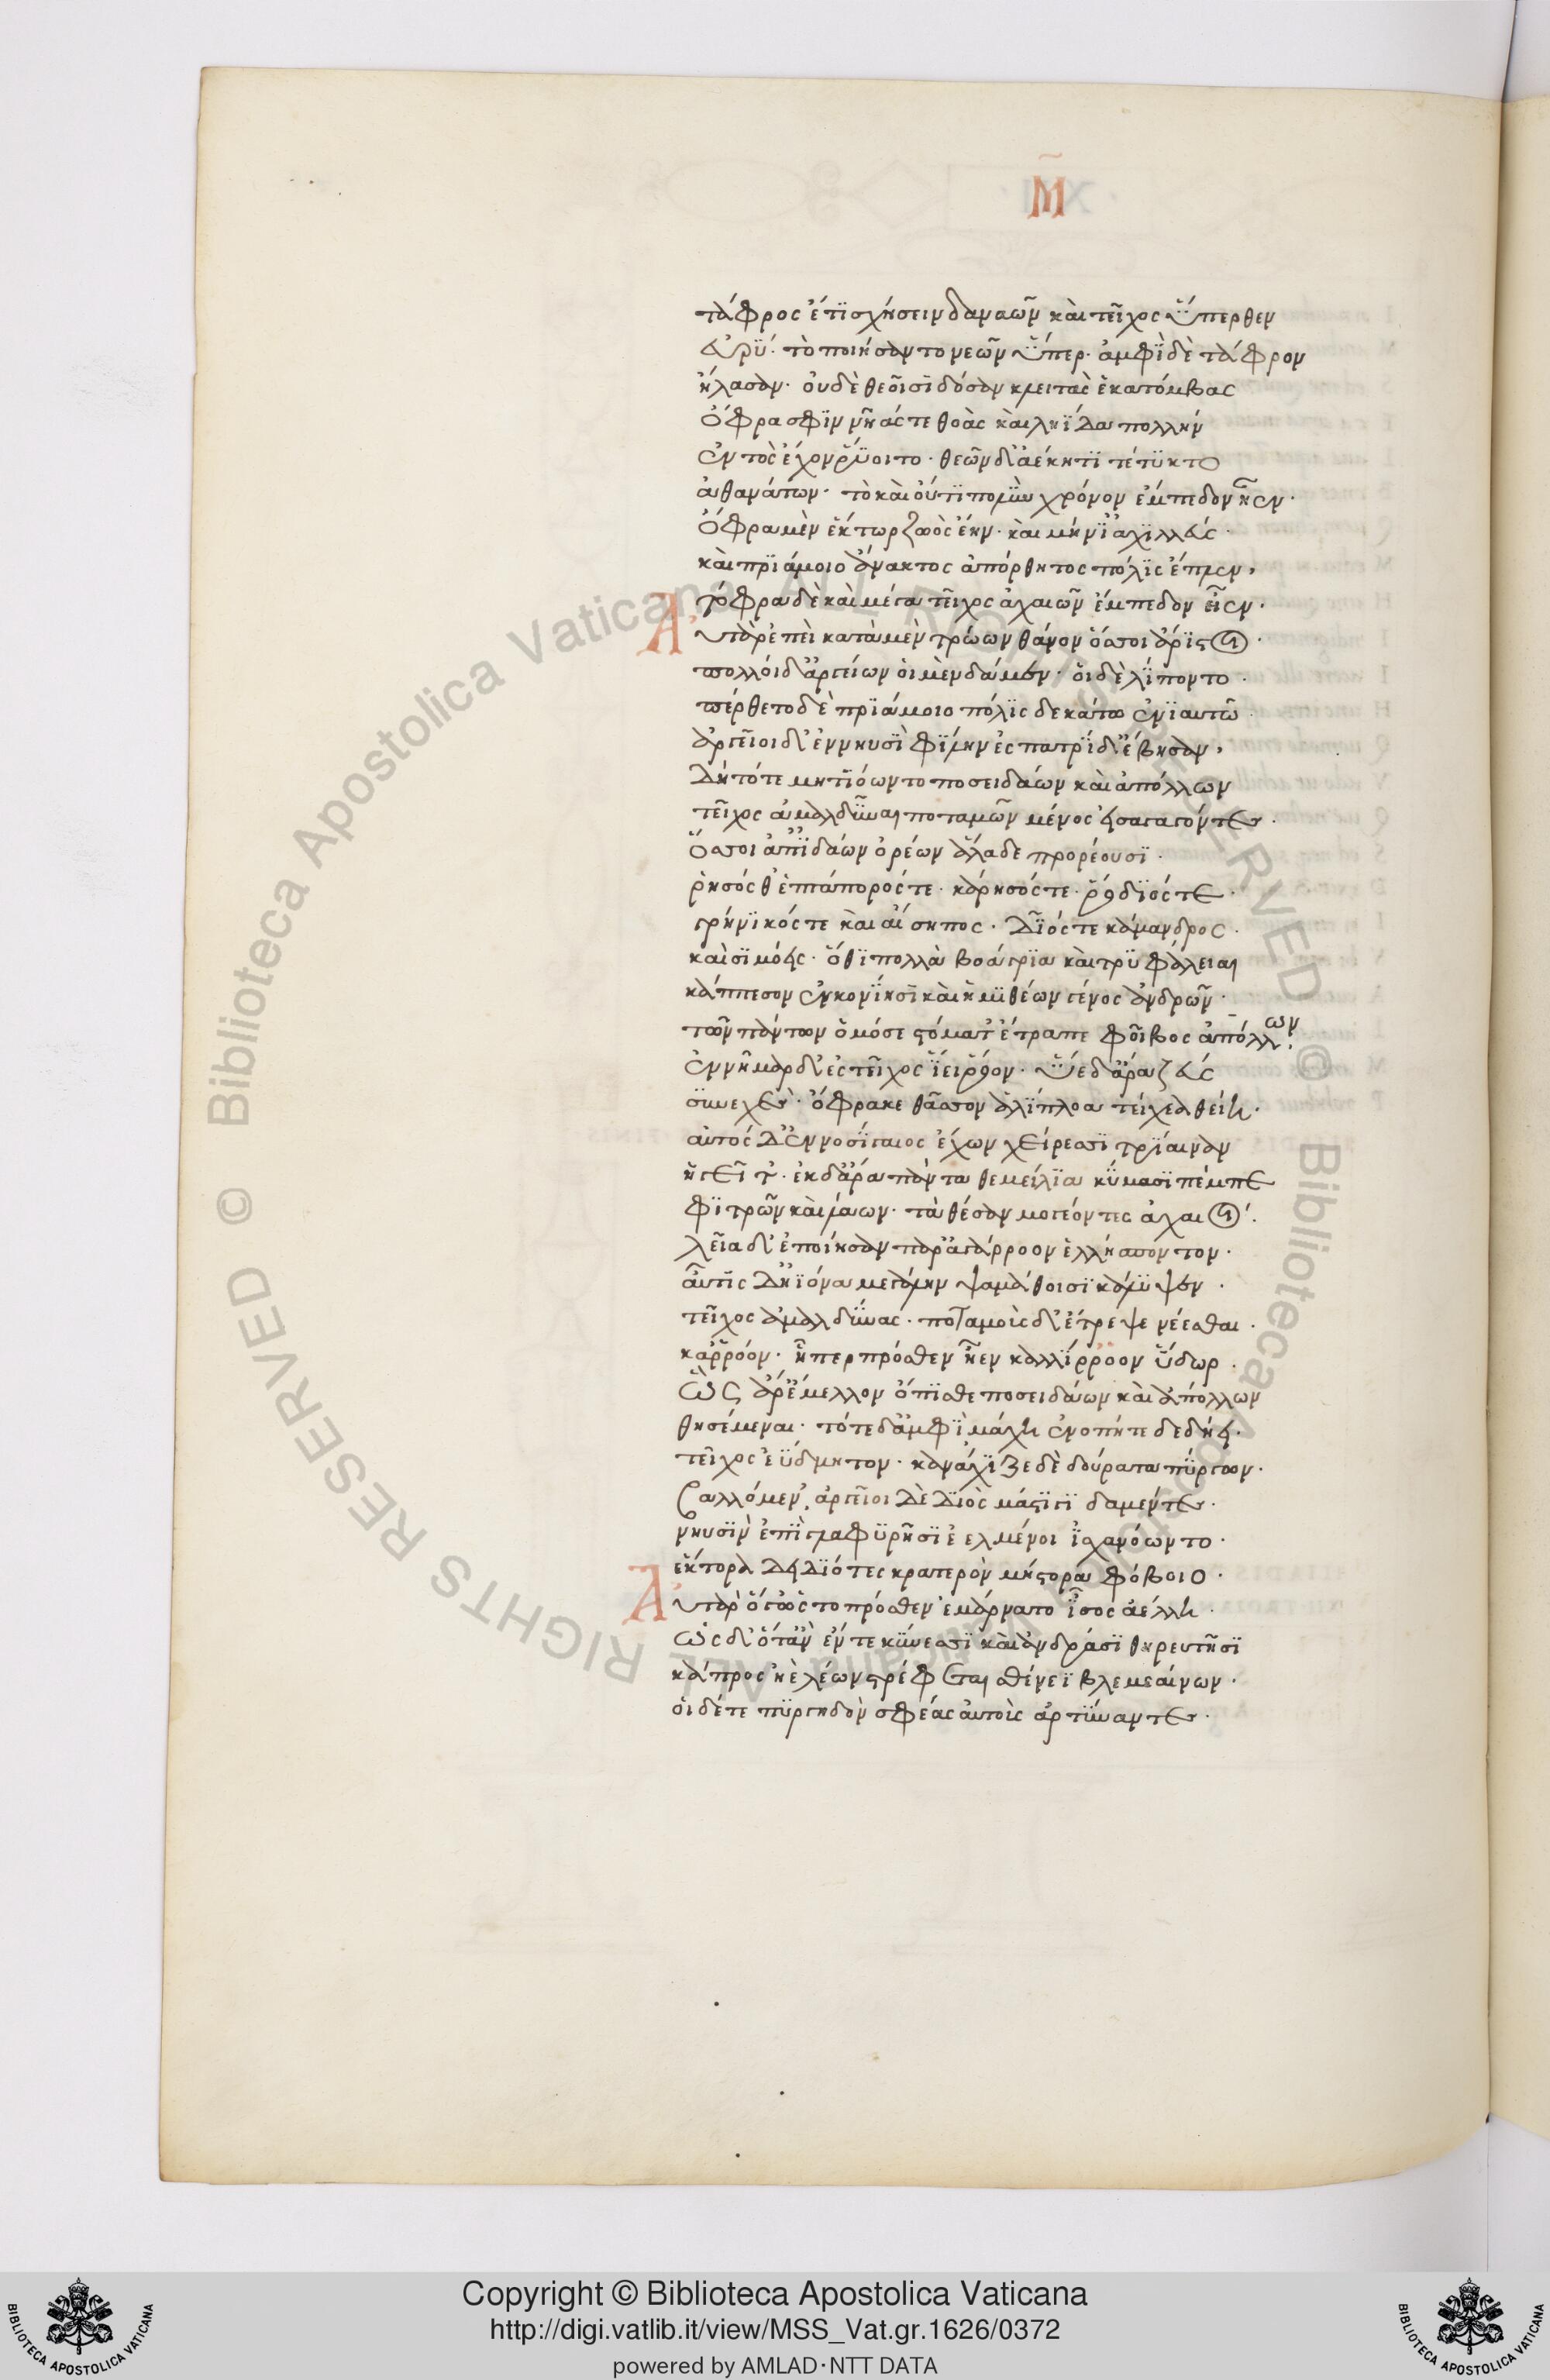 Μ
τάφρος ἔτι σχήσειν δαναῶν καὶ τεῖχος ὕπερθεν
εὐρύ· τὸ ποιήσαντο νεῶν ὕπερ· ἀμφὶ δὲ τάφρον
ἤλασαν· οὐδὲ θεοῖσι δόσαν κλειτὰς ἑκατόμβας
ὄφρα σφιν νῆάς τε θοὰς καὶ ληΐδα πολλὴν
ἐντὸς ἔχον ῥύοιτο· θεῶν δ' ἀέκητι τέτυκτο
ἀθανάτων· τὸ καὶ οὔτι πολὺν χρόνον ἔμπεδον ἦεν·
ὄφρα μὲν ἕκτωρ ζωὸς ἔην· καὶ μήνι' ἀχιλλεύς·
καὶ πριάμοιο ἄνακτος ἀπόρθητος πόλις ἔπλεν,
τόφρα δὲ καὶ μέγα τεῖχος ἀχαιῶν ἔμπεδον εἶεν·
Αὐτὰρ ἐπεὶ κατὰ μὲν τρώων θάνον ὅσσοι ἄριστοι·
πολλοὶ δ' ἀργείων οἱ μὲν δάμεν· οἱ δὲ λίποντο·
πέρθετο δὲ πριάμοιο πόλις δεκάτω ἐνιαυτῶ
ἀργεῖοι δ' ἐν νηυσὶ φίλην ἐς πατρίδ' ἔβησαν,
δὴ τότε μητιόωντο ποσειδάων καὶ ἀπόλλων
τεῖχος ἀμαλδῦναι ποταμῶν μένος εἰσαγαγόντες·
ὅσσοι ἀπ' ἰδάων ὀρέων ἅλαδε προρέουσι·
ῥησός θ' ἑπτάπορός τε· κάρησός τε· ῥόδιός τε·
γρήνικός τε καὶ αἴσηπος· δῖός τε κάμανδρος·
καὶ σιμόεις· ὅθι πολλὰ βοάγρια καὶ τρυφάλειαι
κάππεσον ἐν κονίησι καὶ ἡμιθέων γένος ἀνδρῶν·
τῶν πάντων ὁμόσε στόματ' ἔτραπε φοῖβος ἀπόλλων·
ἐννῆμαρ δ' ἐς τεῖχος ἵει ῥόον· ὗε δ' ἄρα ζεύς
συνεχές· ὄφρα κε θᾶσσον ἁλίπλοα τείχεα θείη·
αὐτὸς δ' ἐννοσίγαιος ἔχων χείρεσσι τρίαιναν
ἡγεῖτ'· ἐκ δ' ἄρα πάντα θεμείλια κύμασι πέμπε
φιτρῶν καὶ λάων· τὰ θέσαν μογέοντες ἀχαιοί·
λεῖα δ' ἐποίησαν παρ' ἀγάρροον ἑλλήσποντον·
αὖτις δ' ἠϊόνα μεγάλην ψαμάθοισι κάλυψεν·
τεῖχος ἀμαλδύνας· ποταμοὺς δ' ἔτρεψε νέεσθαι·
καρρόον· ἧπερ πρόσθεν ἧεν καλλίρροον ὕδωρ·
ὣς ἄρ' ἔμελλον ὄπισθε ποσειδάων καὶ ἀπόλλων
θησέμεναι· τότε δ' ἀμφὶ μάχη ἐνοπή τε δεδήει·
τεῖχος ἐΰδμητον· κανάχιζε δὲ δούρατα πύργων·
βαλλόμεν', ἀργεῖοι δὲ διὸς μάστιγι δαμέντες·
νηυσὶν ἐπὶ γλαφυρῆσι ἐελμένοι ἰσχανόωντο·
ἕκτορα δειδιότες κρατερὸν μήστορα φόβοιο·
Αὐτὰρ ὅγ' ὡς τὸ πρόσθεν ἐμάρνατο ἶσος ἀέλλη·
ὡς δ' ὅτ' ἂν ἔν τε κύνεσσι καὶ ἀνδράσι θηρευτῆσι
κάπρος ἠὲ λέων στρέφεται σθένεϊ βλεμεαίνων·
οἱ δέ τε πυργηδὸν σφέας αὐτοὺς ἀρτύναντες·
© Biblioteca Apostolica Vaticana ALL RIGHTS RESERVED © Biblioteca Apostolica Vaticana ALL RIGHTS RESERVED
BIBLIOTECA APOSTOLICA VATICANA
Copyright © Biblioteca Apostolica Vaticana
http://digi.vatlib.it/view/MSS_Vat.gr.1626/0372
powered by AMLAD·NTT DATA
BIBLIOTECA APOSTOLICA VATICANA